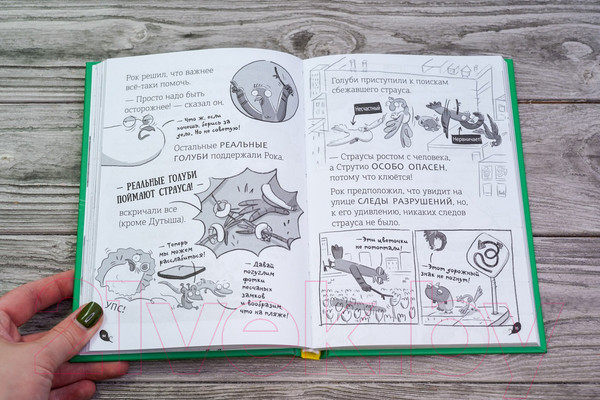 Рок решил, что важнее
всё-таки помочь.
— Просто надо быть
осторожнее! — сказал он.
— Что ж, если
хочешь, берись за
дело. Но не советую!
Остальные РЕАЛЬНЫЕ
ГОЛУБИ поддержали Рока.
— РЕАЛЬНЫЕ ГОЛУБИ
ПОЙМАЮТ СТРАУСА! —
вскричали все
(кроме Дутыша).
— Теперь
мы можем
расслабиться!
— Давай
погуглим
фотки
песчаных
замков
и вообразим,
что на пляже!
УПС!
Голуби приступили к поискам
сбежавшего страуса.
Несчастный
Нервничает
— Страусы ростом с человека,
а Струтио ОСОБО ОПАСЕН,
потому что клюётся!
Рок предположил, что увидит на
улице СЛЕДЫ РАЗРУШЕНИЙ, но,
к его удивлению, никаких следов
страуса не было.
— Эти цветочки
не потоптали!
— Этот дорожный
знак не погнут!